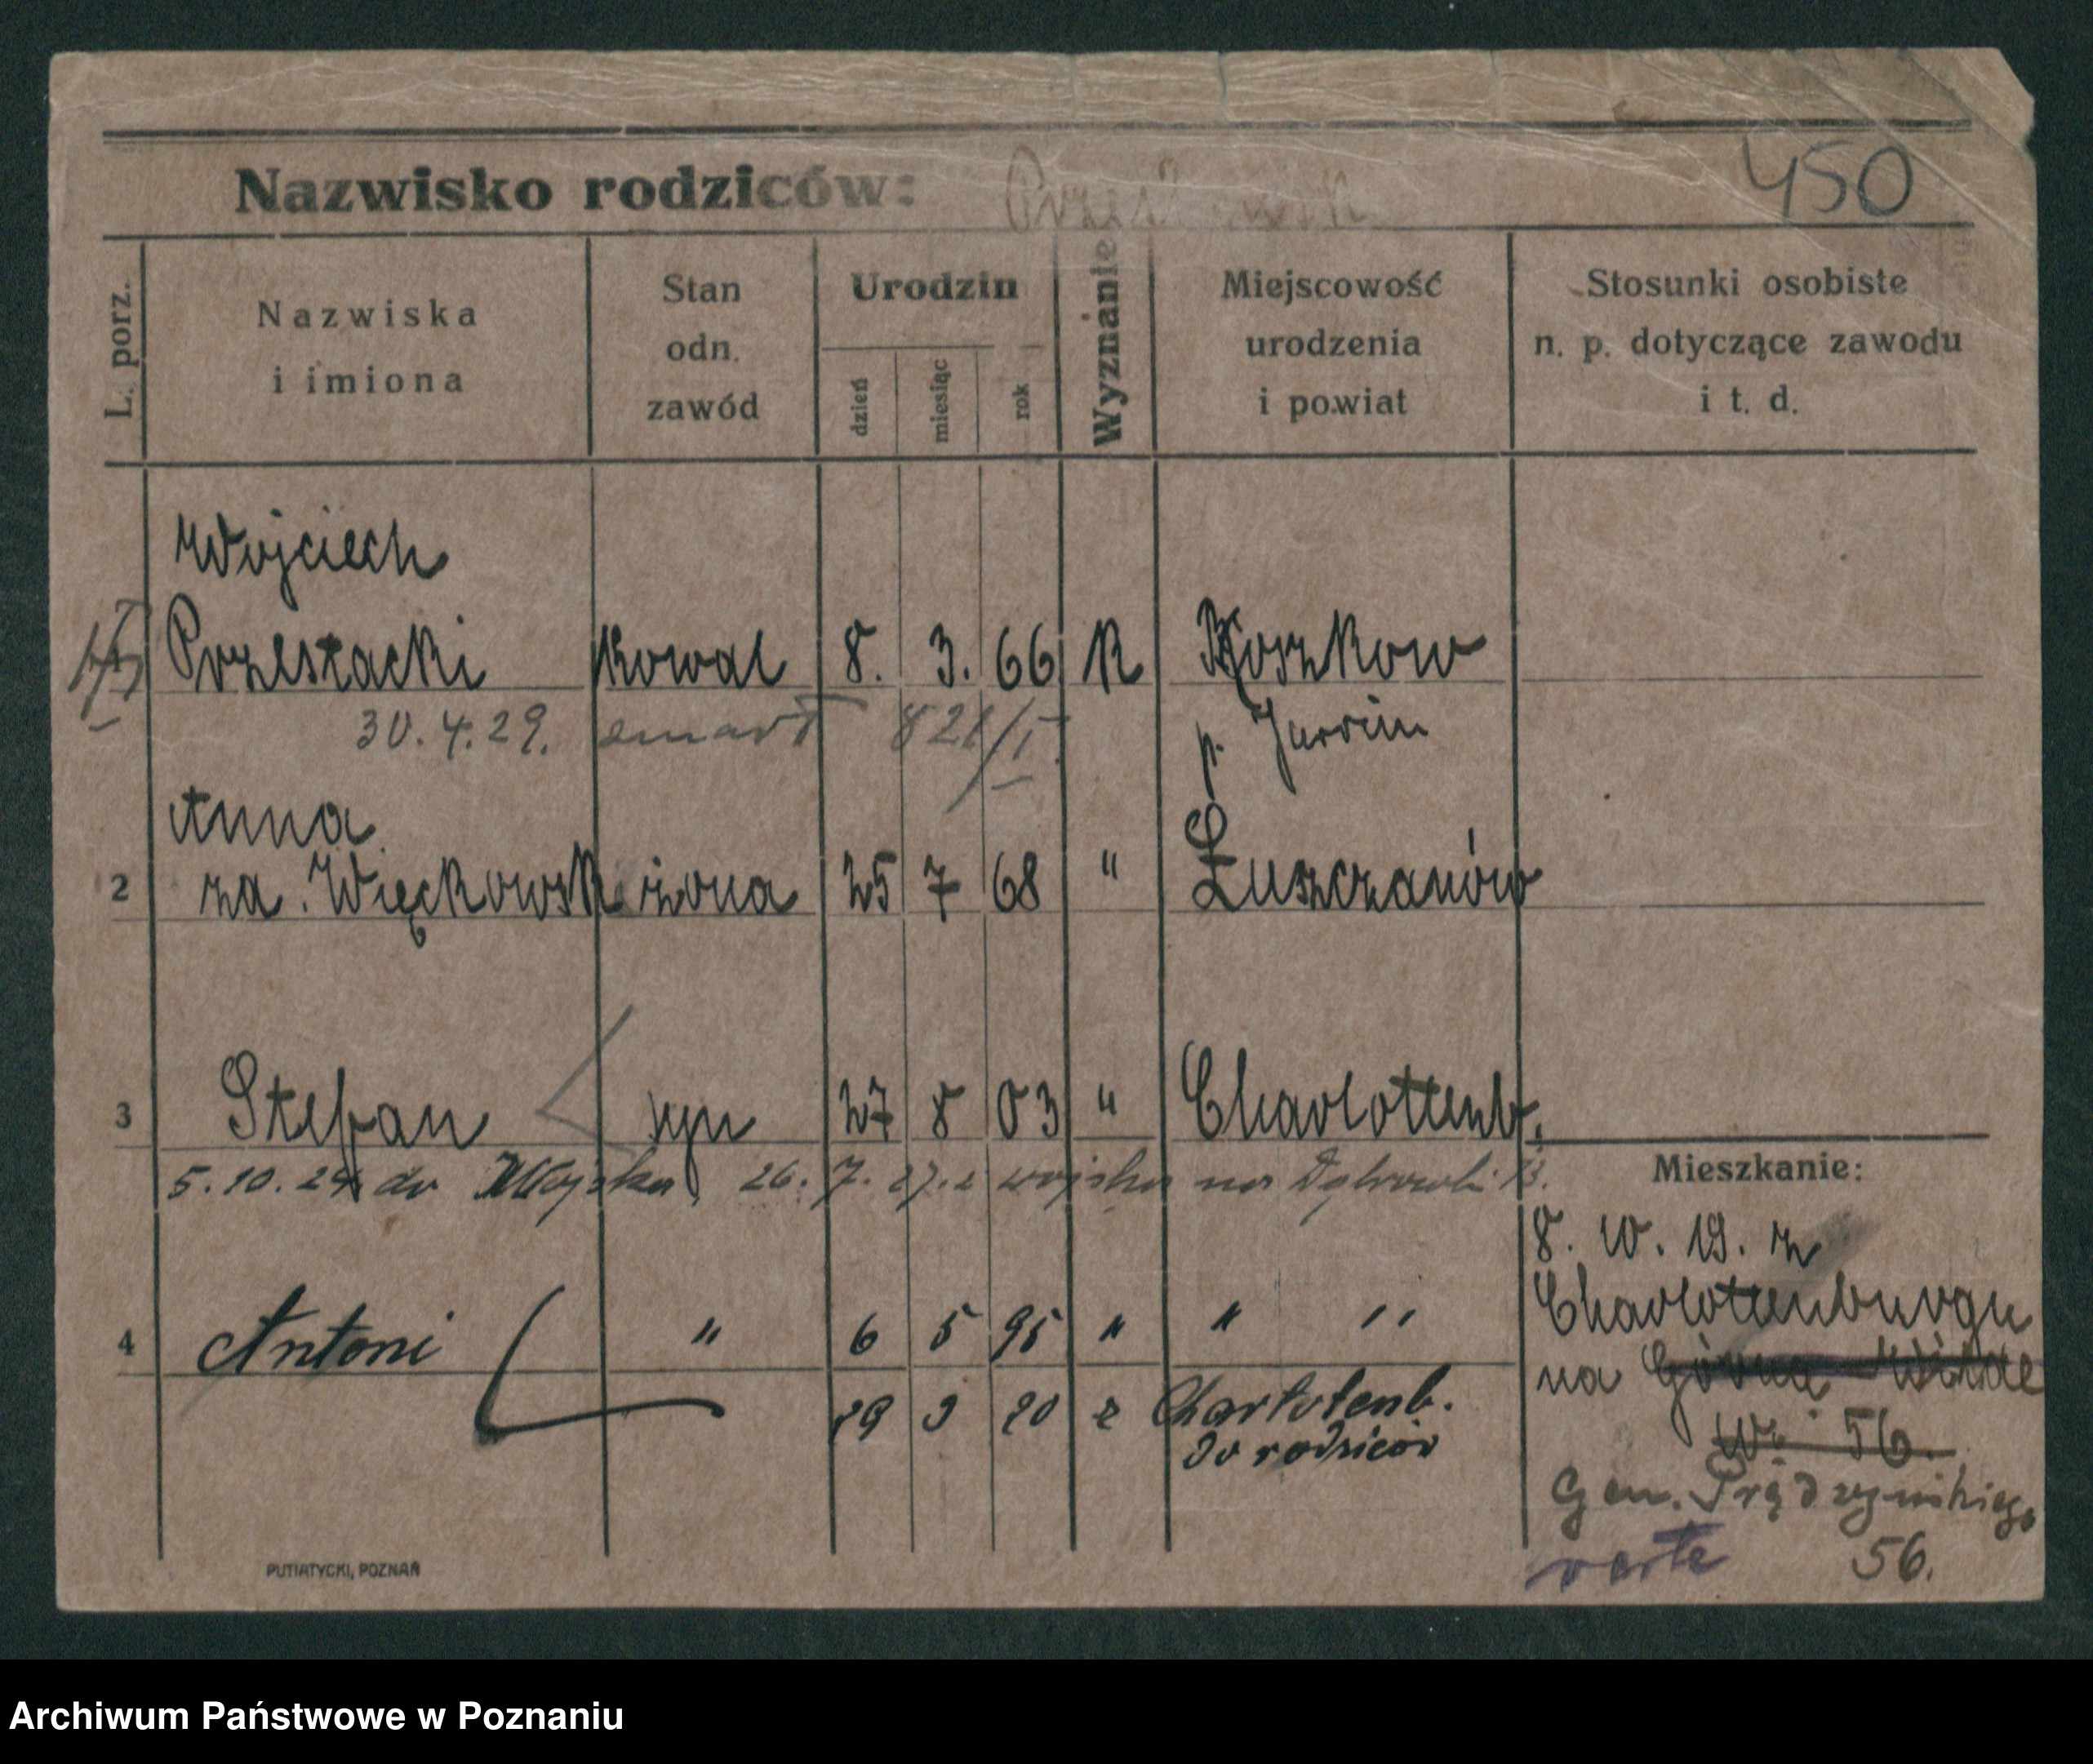 Nazwisko rodziców:
450
L. porz.
Nazwiska
i imiona
Stan
odn.
zawód
Urodzin
dzień
miesiąc
rok
Wyznanie
Miejscowość
urodzenia
i powiat
Stosunki osobiste
n. p. dotyczące zawodu
i t. d.
Wojciech
Przestacki Kowal 8. 3. 66 K Roszkow
30.4.29. zmarł 821/I p. Jarocin
Anna
2 za. Więckowsk żona 25 7 68 " Łuszczanów
3 Stefan syn 27 8 03 " Charlottenb.
5.10.24 do Wojska 26.7.27. z wojska na Dąbrowski
4 Antoni " 6 5 95 " " "
29 9 20 z Charlotenb.
do rodziców
Mieszkanie:
8. 10. 19. z
Charlottenburgu
na Górna Wilde
W. 56.
Gen. Prądzyńskiego
verte 56.
PUTIATYCKI, POZNAŃ
Archiwum Państwowe w Poznaniu